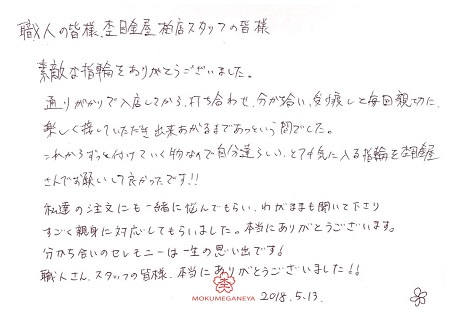 職人の皆様、杢目金屋 柏店スタッフの皆様
素敵な指輪をありがとうございました。
通りがかりで入店してから、打ち合わせ、分かち合い、受け渡しと毎回親切に、
楽しく接していただき出来あがるまであっという間でした。
これからずっと付けていく物なので自分達らしい、とても気に入る指輪を杢目金屋
さんでお願いして良かったです!!
私達の注文にも一緒に悩んでもらい、わがままも聞いて下さり
すごく親身に対応してもらいました。本当にありがとうございます。
分かち合いのセレモニーは一生の思い出です!
職人さん、スタッフの皆様、本当にありがとうございました!!
MOKUMEGANEYA
2018.5.13.